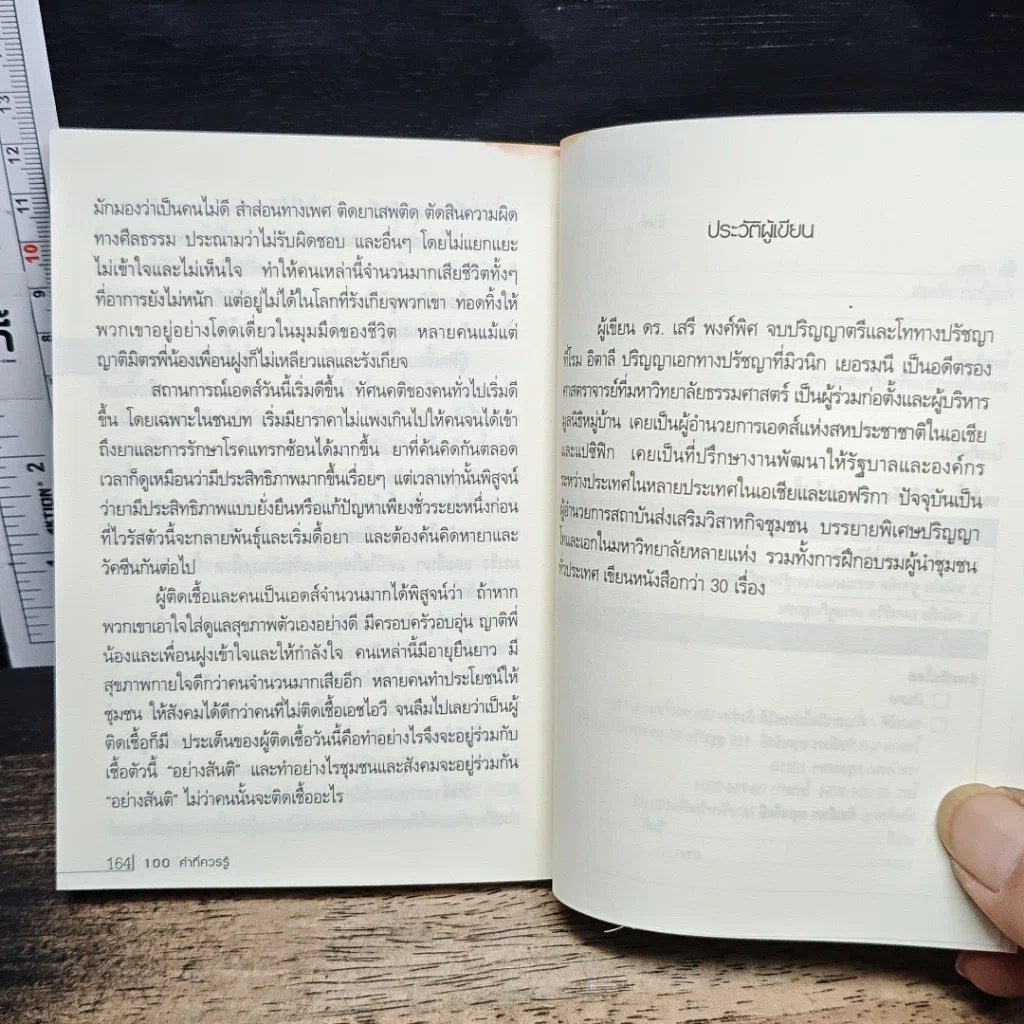 มักมองว่าเป็นคนไม่ดี สำส่อนทางเพศ ติดยาเสพติด ตัดสินความผิด
ทางศีลธรรม ประณามว่าไม่รับผิดชอบ และอื่นๆ โดยไม่แยกแยะ
ไม่เข้าใจและไม่เห็นใจ ทำให้คนเหล่านี้จำนวนมากเสียชีวิตทั้งๆ
ที่อาการยังไม่หนัก แต่อยู่ไม่ได้ในโลกที่รังเกียจพวกเขา ทอดทิ้งให้
พวกเขาอยู่อย่างโดดเดี่ยวในมุมมืดของชีวิต หลายคนแม้แต่
ญาติมิตรพี่น้องเพื่อนฝูงก็ไม่เหลียวแลและรังเกียจ
สถานการณ์เอดส์วันนี้เริ่มดีขึ้น ทัศนคติของคนทั่วไปเริ่มดี
ขึ้น โดยเฉพาะในชนบท เริ่มมียาราคาไม่แพงเกินไปให้คนจนได้เข้า
ถึงยาและการรักษาโรคแทรกซ้อนได้มากขึ้น ยาที่ค้นคิดกันตลอด
เวลาก็ดูเหมือนว่ามีประสิทธิภาพมากขึ้นเรื่อยๆ แต่เวลาเท่านั้นพิสูจน์
ว่ายามีประสิทธิภาพแบบยั่งยืนหรือแก้ปัญหาเพียงชั่วระยะหนึ่งก่อน
ที่ไวรัสตัวนี้จะกลายพันธุ์และเริ่มดื้อยา และต้องค้นคิดหายาและ
วัคซีนกันต่อไป
ผู้ติดเชื้อและคนเป็นเอดส์จำนวนมากได้พิสูจน์ว่า ถ้าหาก
พวกเขาเอาใจใส่ดูแลสุขภาพตัวเองอย่างดี มีครอบครัวอบอุ่น ญาติพี่
น้องและเพื่อนฝูงเข้าใจและให้กำลังใจ คนเหล่านี้มีอายุยืนยาว มี
สุขภาพกายใจดีกว่าคนจำนวนมากเสียอีก หลายคนทำประโยชน์ให้
ชุมชน ให้สังคมได้ดีกว่าคนที่ไม่ติดเชื้อเอชไอวี จนลืมไปเลยว่าเป็นผู้
ติดเชื้อก็มี ประเด็นของผู้ติดเชื้อวันนี้คือทำอย่างไรจึงจะอยู่ร่วมกับ
เชื้อตัวนี้ "อย่างสันติ" และทำอย่างไรชุมชนและสังคมจะอยู่ร่วมกัน
"อย่างสันติ" ไม่ว่าคนนั้นจะติดเชื้ออะไร
164 100 คำที่ควรรู้
ประวัติผู้เขียน
ผู้เขียน ดร. เสรี พงศ์พิศ จบปริญญาตรีและโททางปรัชญา
ที่โรม อิตาลี ปริญญาเอกทางปรัชญาที่มิวนิก เยอรมนี เป็นอดีตรอง
ศาสตราจารย์ที่มหาวิทยาลัยธรรมศาสตร์ เป็นผู้ร่วมก่อตั้งและผู้บริหาร
มูลนิธิหมู่บ้าน เคยเป็นผู้อำนวยการเอดส์แห่งสหประชาชาติในเอเชีย
และแปซิฟิก เคยเป็นที่ปรึกษางานพัฒนาให้รัฐบาลและองค์กร
ระหว่างประเทศในหลายประเทศในเอเชียและแอฟริกา ปัจจุบันเป็น
ผู้อำนวยการสถาบันส่งเสริมวิสาหกิจชุมชน บรรยายพิเศษปริญญา
โทและเอกในมหาวิทยาลัยหลายแห่ง รวมทั้งการฝึกอบรมผู้นำชุมชน
ทั่วประเทศ เขียนหนังสือกว่า 30 เรื่อง
13
12
11
10
9
8
2